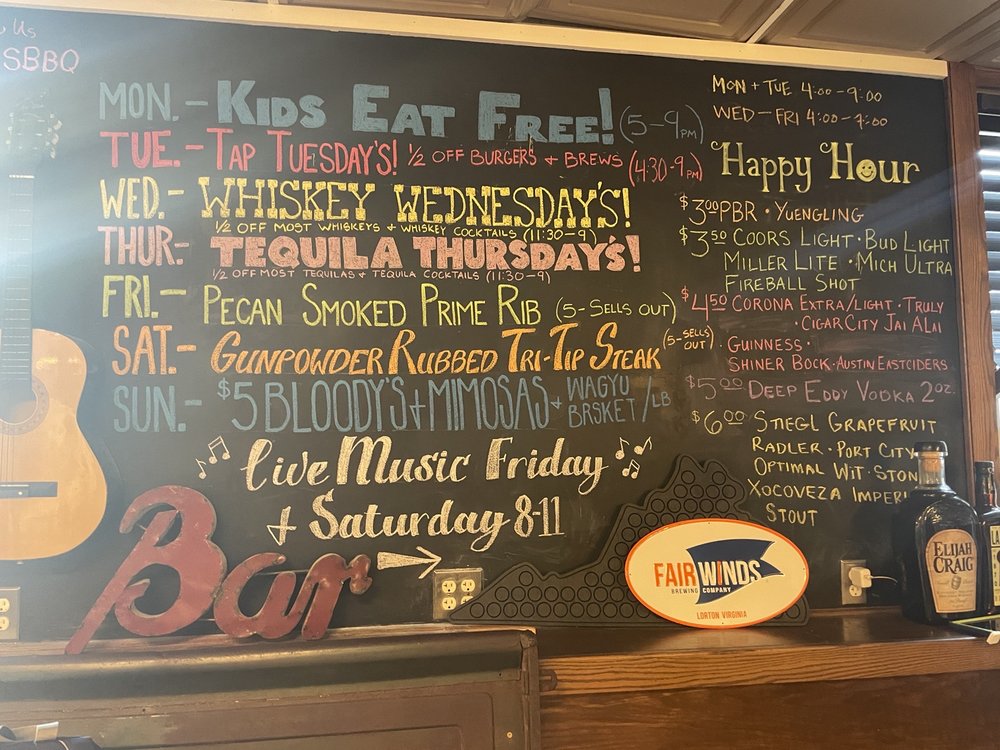 Us
SBBQ
MON. - KIDS EAT FREE! (5-9PM)
TUE. - TAP TUESDAY'S! 1/2 OFF BURGERS + BREWS (4:30-9PM)
WED. - WHISKEY WEDNESDAY'S!
1/2 OFF MOST WHISKEYS + WHISKEY COCKTAILS (11:30-9)
THUR- TEQUILA THURSDAY'S!
1/2 OFF MOST TEQUILAS + TEQUILA COCKTAILS (11:30-9)
FRI. - PECAN SMOKED PRIME RIB (5-SELLS OUT)
SAT. - GUNPOWDER RUBBED TRI-TIP STEAK (5-SELLS OUT)
SUN. - $5 BLOODY'S + MIMOSAS + WAGYU BRISKET /LB
Live Music Friday
+ Saturday 8-11
MON + TUE 4:00-9:00
WED - FRI 4:00-7:00
Happy Hour
$3.00 PBR · YUENGLING
$3.50 COORS LIGHT · BUD LIGHT
MILLER LITE · MICH ULTRA
FIREBALL SHOT
$4.50 CORONA EXTRA/LIGHT · TRULY
· CIGAR CITY JAI ALAI
· GUINNESS ·
SHINER BOCK · AUSTIN EASTCIDERS
$5.00 DEEP EDDY VODKA 2oz.
$6.00 STIEGL GRAPEFRUIT
RADLER · PORT CITY
OPTIMAL WIT · STON
XOCOVEZA IMPERI
STOUT
Bar
FAIR WINDS
BREWING COMPANY
LORTON VIRGINIA
ELIJAH
CRAIG